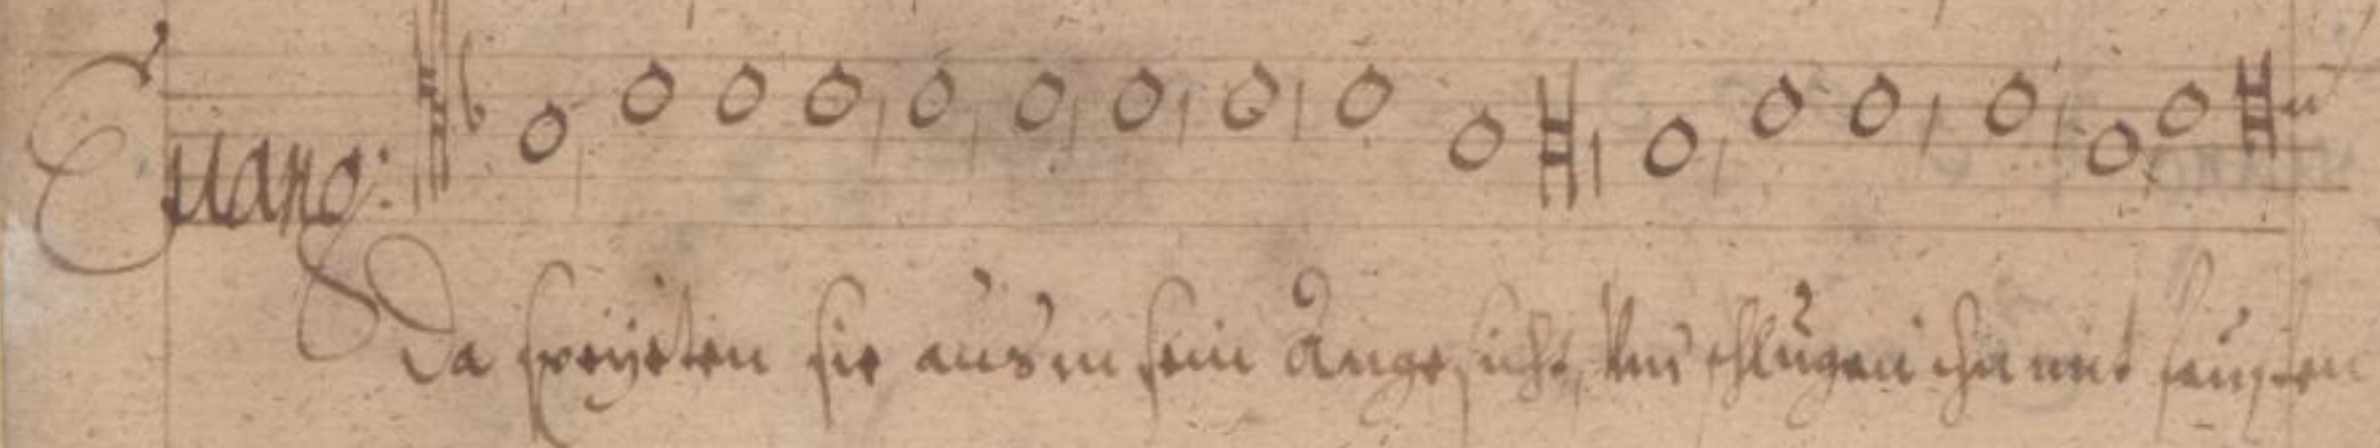 Evang:
Da speyeten sie aus in sein Angesicht, Und schlugen ihn mit feusten